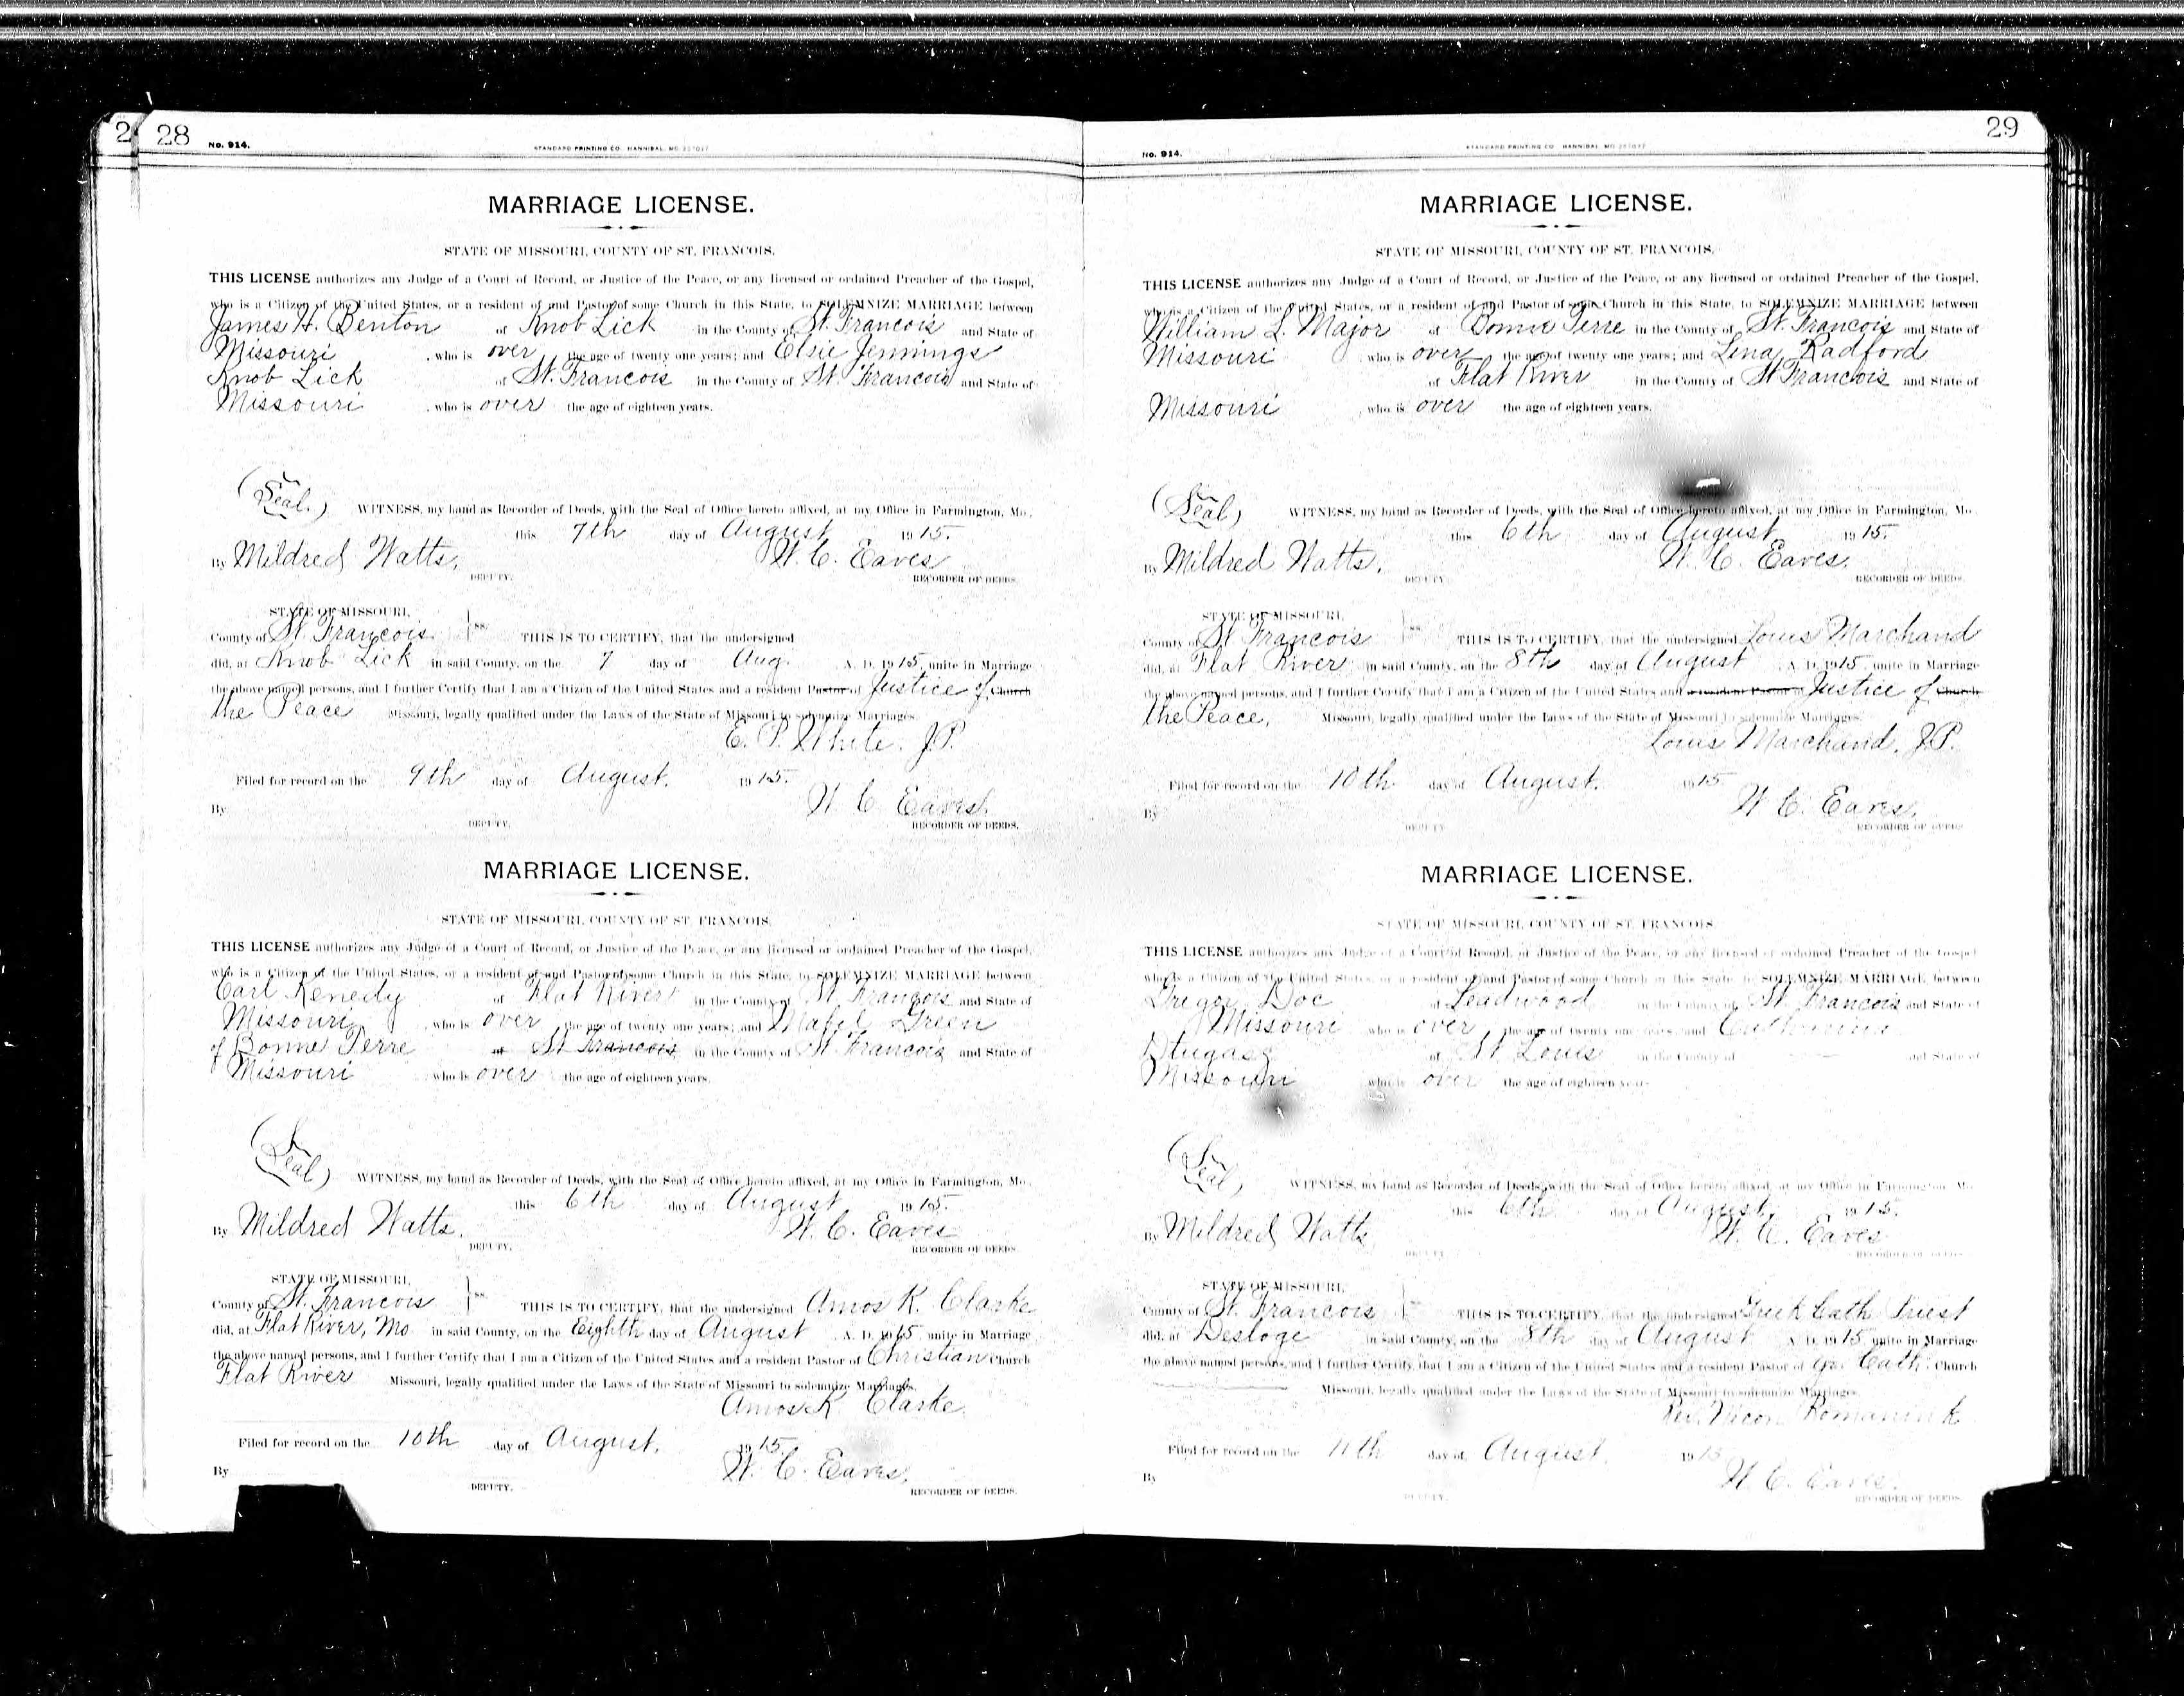 2 28
No. 914.
STANDARD PRINTING CO. HANNIBAL, MO.
MARRIAGE LICENSE.
STATE OF MISSOURI, COUNTY OF ST. FRANCOIS.
THIS LICENSE authorizes any Judge of a Court of Record, or Justice of the Peace, or any licensed or ordained Preacher of the Gospel,
who is a Citizen of the United States, or a resident of and Pastor of some Church in this State, to SOLEMNIZE MARRIAGE between
James H. Benton of Knob Lick in the County of St. Francois and State of
Missouri, who is over the age of twenty one years; and Elsie Jennings
Knob Lick of St. Francois in the County of St. Francois and State of
Missouri, who is over the age of eighteen years.
(Seal.) WITNESS, my hand as Recorder of Deeds, with the Seal of Office hereto affixed, at my Office in Farmington, Mo.,
this 7th day of August 1915.
By Mildred Watts, W. C. Eaves
DEPUTY. RECORDER OF DEEDS.
STATE OF MISSOURI,
County of St. Francois ss. THIS IS TO CERTIFY, that the undersigned
did, at Knob Lick in said County, on the 7 day of Aug. A. D. 1915, unite in Marriage
the above named persons, and I further Certify that I am a Citizen of the United States and a resident Pastor of Justice of Church
the Peace Missouri, legally qualified under the Laws of the State of Missouri to solemnize Marriages.
E. P. White. J.P.
Filed for record on the 9th day of August. 1915.
W. C. Eaves.
By
DEPUTY. RECORDER OF DEEDS.
MARRIAGE LICENSE.
STATE OF MISSOURI, COUNTY OF ST. FRANCOIS.
THIS LICENSE authorizes any Judge of a Court of Record, or Justice of the Peace, or any licensed or ordained Preacher of the Gospel,
who is a Citizen of the United States, or a resident of and Pastor of some Church in this State, to SOLEMNIZE MARRIAGE between
Earl Kenedy of Flat River in the County of St. Francois and State of
Missouri, who is over the age of twenty one years; and Mabel Green
of Bonne Terre of St Francois, in the County of St. Francois and State of
Missouri who is over the age of eighteen years.
(Seal) WITNESS, my hand as Recorder of Deeds, with the Seal of Office hereto affixed, at my Office in Farmington, Mo.,
this 6th day of August 1915.
By Mildred Watts. W. C. Eaves
DEPUTY. RECORDER OF DEEDS.
STATE OF MISSOURI,
County of St. Francois ss. THIS IS TO CERTIFY, that the undersigned Amos R. Clarke
did, at Flat River, Mo. in said County, on the Eighth day of August A. D. 1915 unite in Marriage
the above named persons, and I further Certify that I am a Citizen of the United States and a resident Pastor of Christian Church
Flat River Missouri, legally qualified under the Laws of the State of Missouri to solemnize Marriages.
Amos R Clarke.
Filed for record on the 10th day of August. 1915.
W. C. Eaves.
By
DEPUTY. RECORDER OF DEEDS.
29
No. 914.
STANDARD PRINTING CO. HANNIBAL, MO.
MARRIAGE LICENSE.
STATE OF MISSOURI, COUNTY OF ST. FRANCOIS.
THIS LICENSE authorizes any Judge of a Court of Record, or Justice of the Peace, or any licensed or ordained Preacher of the Gospel,
who is a Citizen of the United States, or a resident of and Pastor of some Church in this State, to SOLEMNIZE MARRIAGE between
William L. Major of Bonne Terre in the County of St. Francois and State of
Missouri who is over the age of twenty one years; and Lena Radford
of Flat River in the County of St Francois and State of
Missouri, who is over the age of eighteen years.
(Seal) WITNESS, my hand as Recorder of Deeds, with the Seal of Office hereto affixed, at my Office in Farmington, Mo.
this 6th day of August 1915.
By Mildred Watts. W. C. Eaves.
DEPUTY. RECORDER OF DEEDS.
STATE OF MISSOURI,
County of St Francois ss. THIS IS TO CERTIFY, that the undersigned Louis Marchand
did, at Flat River in said County, on the 8th day of August A. D. 1915, unite in Marriage
the above named persons, and I further Certify that I am a Citizen of the United States and a resident Pastor of Justice of Church
the Peace, Missouri, legally qualified under the Laws of the State of Missouri to solemnize Marriages.
Louis Marchand, J.P.
Filed for record on the 10th day of August. 1915
W. C. Eaves.
By
DEPUTY RECORDER OF DEEDS
MARRIAGE LICENSE.
STATE OF MISSOURI, COUNTY OF ST. FRANCOIS
THIS LICENSE authorizes any Judge of a Court of Record, or Justice of the Peace, or any licensed or ordained Preacher of the Gospel
who is a Citizen of the United States, or a resident of and Pastor of some Church in this State, to SOLEMNIZE MARRIAGE between
Gregor Doc of Leadwood in the County of St Francois and State of
Missouri who is over the age of twenty one years; and Catharina
Dlugasz of St Louis in the County of and State of
Missouri who is over the age of eighteen years
(Seal) WITNESS, my hand as Recorder of Deeds, with the Seal of Office hereto affixed, at my Office in Farmington, Mo.
this 6th day of August, 1915.
By Mildred Watts W. C. Eaves
DEPUTY RECORDER OF DEEDS
STATE OF MISSOURI,
County of St. Francois ss. THIS IS TO CERTIFY, that the undersigned Greek Cath Priest
did, at Desloge in said County, on the 8th day of August A. D. 1915 unite in Marriage
the above named persons, and I further Certify that I am a Citizen of the United States and a resident Pastor of Gr. Cath. Church
Missouri, legally qualified under the Laws of the State of Missouri to solemnize Marriages.
Rev. Nicon Romaniuk
Filed for record on the 11th day of August. 1915
W. C. Eaves.
By
DEPUTY. RECORDER OF DEEDS.